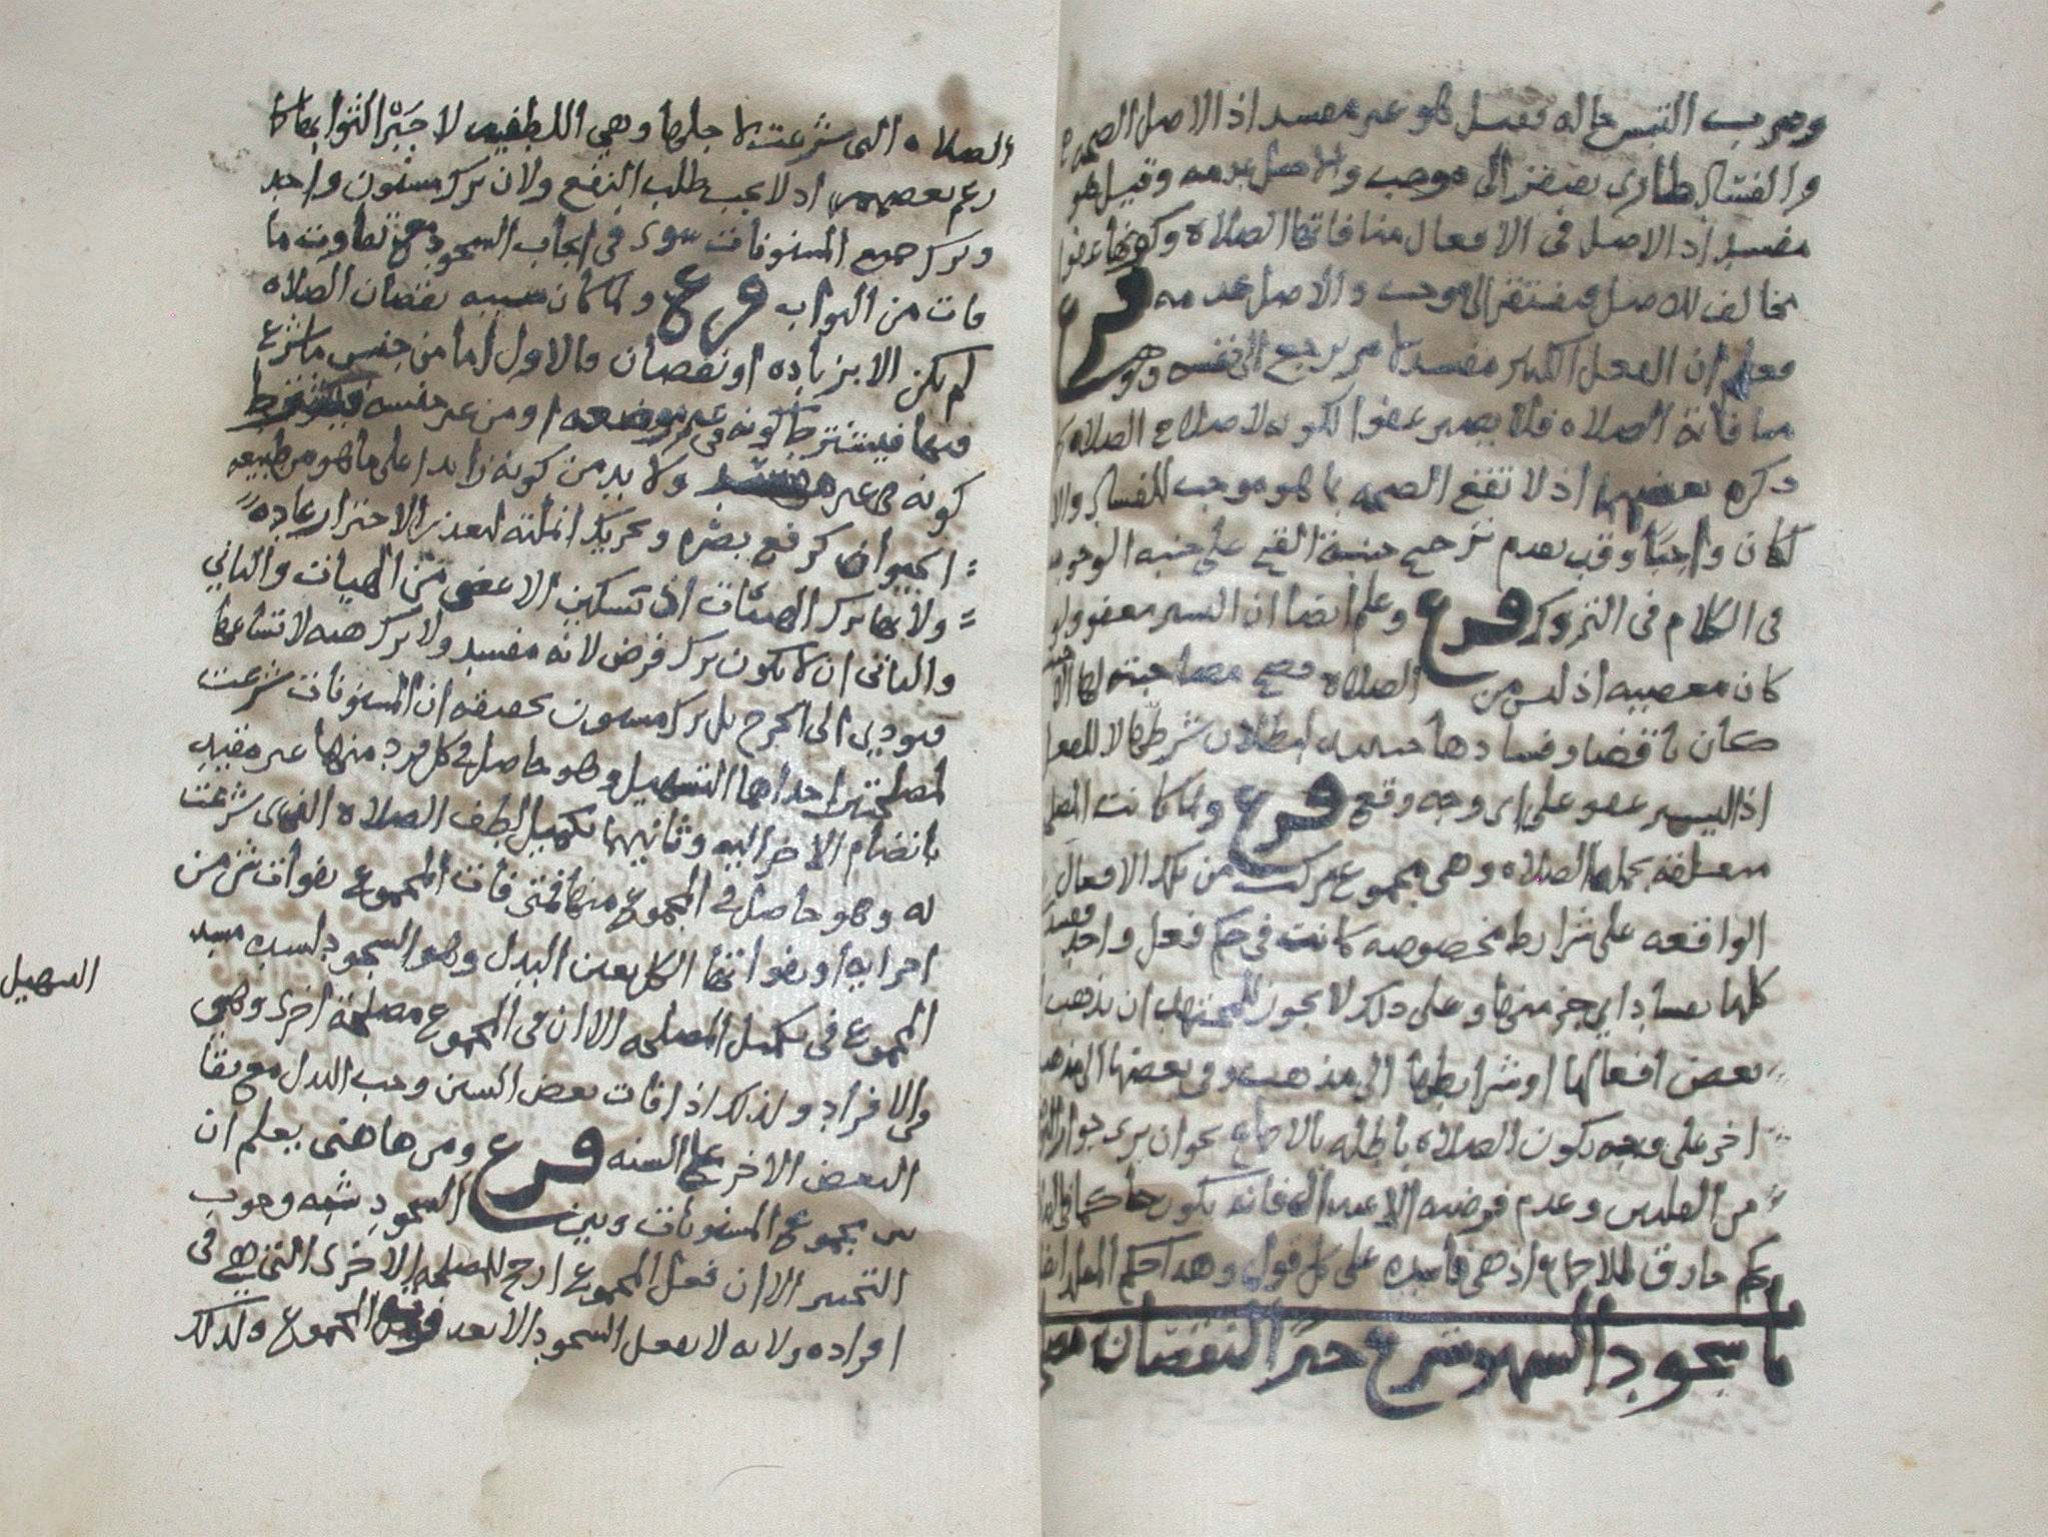 وصرب التبس حاله فقيل هو غير مفسد اذ الاصل الصحه
والفساد طارى يفتقر الى موجب والاصل عدمه وقيل هو
مفسد اذ الاصل فى الافعال منافاتها الصلاه وكونها عفوا
مخالف للاصل فيفتقر الى موجب والاصل عدمه فرع
فعلم ان الفعل الكثير مفسد لامر يرجع الى نفسه وهو
منافاته الصلاه فلا يصير عفوا لكونه لاصلاح الصلاه
ذكره بعضهم اذ لا تقف الصحه بما هو موجب للفساد والا
لكان واجبا وقب بعدم ترجيح جنبة القبح على جنبه الوجوب
فى الكلام فى التروك فرع وعلم ايضا ان اليسير معفو ولو
كان معصيه اذ ليس من الصلاه فصح مصاحبته لها
كان ناقضا وفسادها حينئذ لبطلان شرطها لا للفعل
اذ اليسير عفو على اى وجه وقع فرع ولما كانت
متعلقه بجمله الصلاه وهى مجموع مركب من تلك الافعال
الواقعه على شرايط مخصوصه كانت فى حكم فعل واحد فيفسد
كلها بفساد اي جز منها وعلى ذلك لا يجوز للمجتهد ان يذهب
بعض افعالها او شرايطها الى مذهب وفى بعضها الى مذهب
اخر على وجه يكون الصلاه باطله بالاجماع نحو ان يرى جواز
من وعدم فرضيه الاعتدال فانه يكون حاكما
بحكم خارق للاجماع اذ هى فاسده على كل قول وهذا حكم المقلد ايضا
باب سجود السهو شرع جبرا لنقصان
الصلاه التى شرعت لاجلها وهي اللطفيه لا جبرا لثوابها كما
زعم بعضهم اذ لا يجب طلب النفع ولان ترك مسنون واحد
وترك جميع المسنونات سوى فى ايجاب السجود مع تفاوت ما
فات من الثواب فرع ولما كان سببه نقصان الصلاه
لم يكن الا بزياده او نقصان فالاول اما من جنس ما شرع
فيها فيشترط كونه فى غير موضعه او من غير جنسه فيشترط
كونه غير مفسد ولا بد من كونه زايدا على ما هو من طبيعه
الحيوان كرفع بصره وتحريك انملته لتعذر الاحتراز عاده
ولا بها ترك الهيئات اذ تسكين الاعضى من الهيات والثاني
والثانى ان لا يكون ترك فرض لانه مفسد ولا ترك هيه لا تساعها
فيودي الى الحرج بل ترك مسنون تحقيقه ان المسنونات شرعت
لمصلحتين احداهما التسهيل وهو حاصل فى كل فرد منها غير مقيد
بانضمام الاخر اليه وثانيهما تكميل لطف الصلاه الذى شرعت
له وهو حاصل فى المجموع منها فمتى فات المجموع بفوات شى من
اجزايه او بفواتها الكل تعين البدل وهو السجود لسده مسد
المجموع فى تكميل المصلحه الا ان فى المجموع مصلحة اخرى وهى
التسهيل
فى الافراد ولذلك اذا فات بعض السنن وجب البدل مع بقا
البعض الاخر على السنه فرع ومن هاهنى يعلم ان
بين مجموع المسنونات وبين السجود شبه وجوب
التخيير الا ان فعل المجموع ارجح للمصلحه الاخرى التى هي فى
افراده ولانه لا يفعل السجود الا بعد فوت المجموع ولذلك